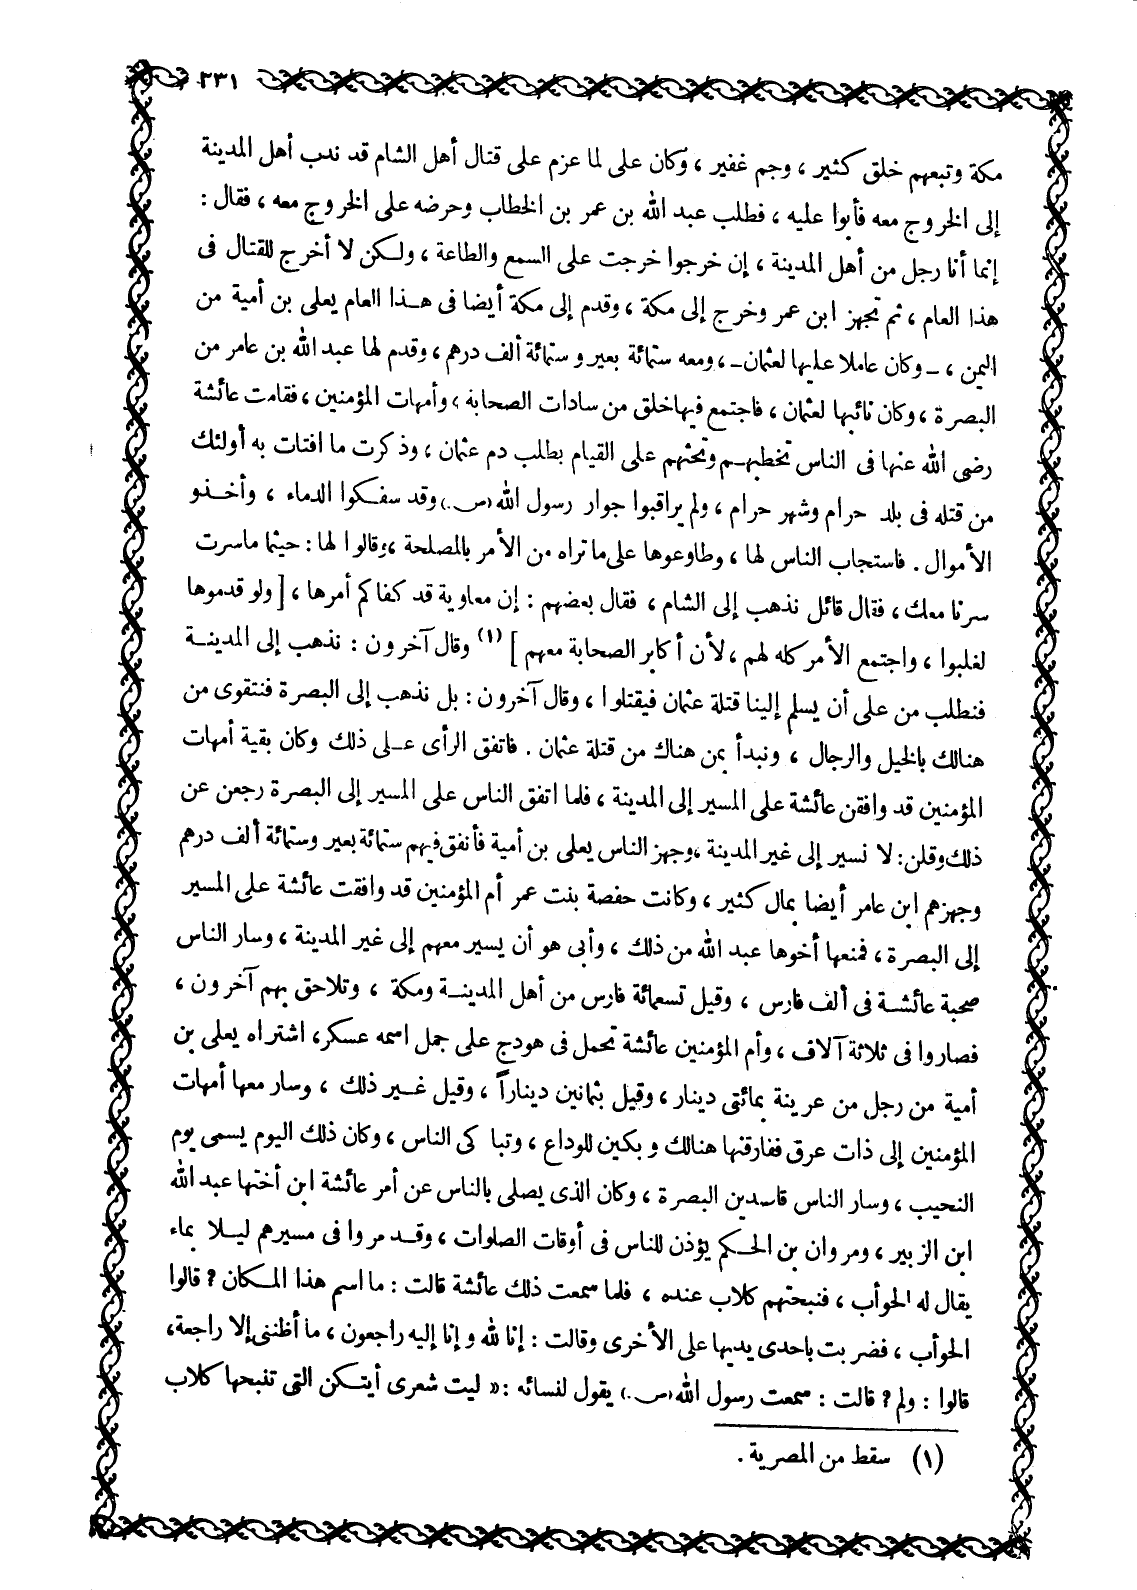 ٢٣١
مكة وتبعهم خلق كثير ، وجم غفير ، وكان على لما عزم على قتال أهل الشام قد ندب أهل المدينة
إلى الخروج معه فأبوا عليه ، فطلب عبد الله بن عمر بن الخطاب وحرضه على الخروج معه ، فقال :
إنما أنا رجل من أهل المدينة ، إن خرجوا خرجت على السمع والطاعة ، ولكن لا أخرج للقتال فى
هذا العام ، ثم تجهز ابن عمر وخرج إلى مكة ، وقدم إلى مكة أيضا فى هذا العام يعلى بن أمية من
اليمن ، ـ وكان عاملا عليها لعثمان ـ ، ومعه ستمائة بعير وستمائة ألف درهم ، وقدم لها عبد الله بن عامر من
البصرة ، وكان نائبها لعثمان ، فاجتمع فيها خلق من سادات الصحابة ، وأمهات المؤمنين ، فقامت عائشة
رضى الله عنها فى الناس تخطبهم وتحثهم على القيام بطلب دم عثمان ، وذكرت ما افتات به أولئك
من قتله فى بلد حرام وشهر حرام ، ولم يراقبوا جوار رسول الله (ص.) وقد سفكوا الدماء ، وأخذو
الأموال . فاستجاب الناس لها ، وطاوعوها على ما تراه من الأمر بالمصلحة ، وقالوا لها : حيثما ماسرت
سرنا معك ، فقال قائل نذهب إلى الشام ، فقال بعضهم : إن معاوية قد كفاكم أمرها ، [ ولو قدموها
لغلبوا ، واجتمع الأمر كله لهم ، لأن أكابر الصحابة معهم ] (١) وقال آخرون : نذهب إلى المدينة
فنطلب من على أن يسلم إلينا قتلة عثمان فيقتلوا ، وقال آخرون : بل نذهب إلى البصرة فنتقوى من
هنالك بالخيل والرجال ، ونبدأ بمن هناك من قتلة عثمان . فاتفق الرأى على ذلك وكان بقية أمهات
المؤمنين قد وافقن عائشة على المسير إلى المدينة ، فلما اتفق الناس على المسير إلى البصرة رجعن عن
ذلك وقلن : لا نسير إلى غير المدينة ، وجهز الناس يعلى بن أمية فأنفق فيهم ستمائة بعير وستمائة ألف درهم
وجهزهم ابن عامر أيضا بمال كثير ، وكانت حفصة بنت عمر أم المؤمنين قد وافقت عائشة على المسير
إلى البصرة ، فمنعها أخوها عبد الله من ذلك ، وأبى هو أن يسير معهم إلى غير المدينة ، وسار الناس
صحبة عائشة فى ألف فارس ، وقيل تسعمائة فارس من أهل المدينة ومكة ، وتلاحق بهم آخرون ،
فصاروا فى ثلاثة آلاف ، وأم المؤمنين عائشة تحمل فى هودج على جمل اسمه عسكر ، اشتراه يعلى بن
أمية من رجل من عرينة بمائتى دينار ، وقيل بثمانين ديناراً ، وقيل غير ذلك ، وسار معها أمهات
المؤمنين إلى ذات عرق ففارقنها هنالك وبكين للوداع ، وتبا كى الناس ، وكان ذلك اليوم يسمى يوم
النحيب ، وسار الناس قاصدين البصرة ، وكان الذى يصلى بالناس عن أمر عائشة ابن أختها عبد الله
ابن الزبير ، ومروان بن الحكم يؤذن للناس فى أوقات الصلوات ، وقد مروا فى مسيرهم ليلا بماء
يقال له الحوأب ، فنبحتهم كلاب عنده ، فلما سمعت ذلك عائشة قالت : ما اسم هذا المكان ؟ قالوا
الحوأب ، فضربت باحدى يديها على الأخرى وقالت : إنا لله وإنا إليه راجعون ، ما أظننى إلا راجعة ،
قالوا : ولم ؟ قالت : سمعت رسول الله (ص.) يقول لنسائه : « ليت شعرى أيتكن التى تنبحها كلاب
(١) سقط من المصرية .